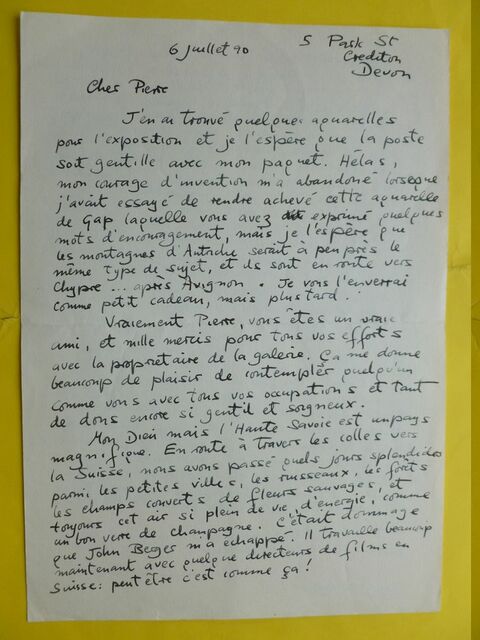 6 Juillet 90
5 Park St
Crediton
Devon
Cher Pierre
J'en ai trouvé quelques aquarelles
pour l'exposition et je l'espère que la poste
soit gentille avec mon paquet. Hélas,
mon courage d'invention m'a abandoné lorsque
j'avait essayé de rendre achevé cette aquarelle
de Gap laquelle vous avez exprimé quelques
mots d'encouragement, mais je l'espère que
les montagnes d'Autriche serait à peu près le
même type de sujet, et ils sont en route vers
Chypre ... après Avignon. Je vous l'enverrai
comme petit cadeau, mais plus tard.
Vraiement Pierre, vous êtes un vraie
ami, et mille mercis pour tous vos efforts
avec la propriétaire de la galerie. Ça me donne
beaucoup de plaisir de contempler quelqu'un
comme vous avec tous vos occupations et tant
de dons encore si gentil et soigneux.
Mon Dieu mais l'Haute Savoie est un pays
magnifique. En route à travers les colles vers
la Suisse, nous avons passé quels jours splendides
parmi les petites villes, les russeaux, les forêts
les champs converts de fleurs sauvages, et
toujours cet air si plein de vie, d'energie, comme
un bon verre de champagne. C'était dommage
que John Berger m'a echappé. Il travaille beaucoup
maintenant avec quelque directeurs de films en
Suisse: peut être c'est comme ça!